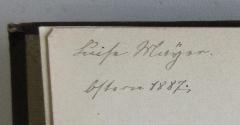 Luise Mayer.
Ostern 1887.